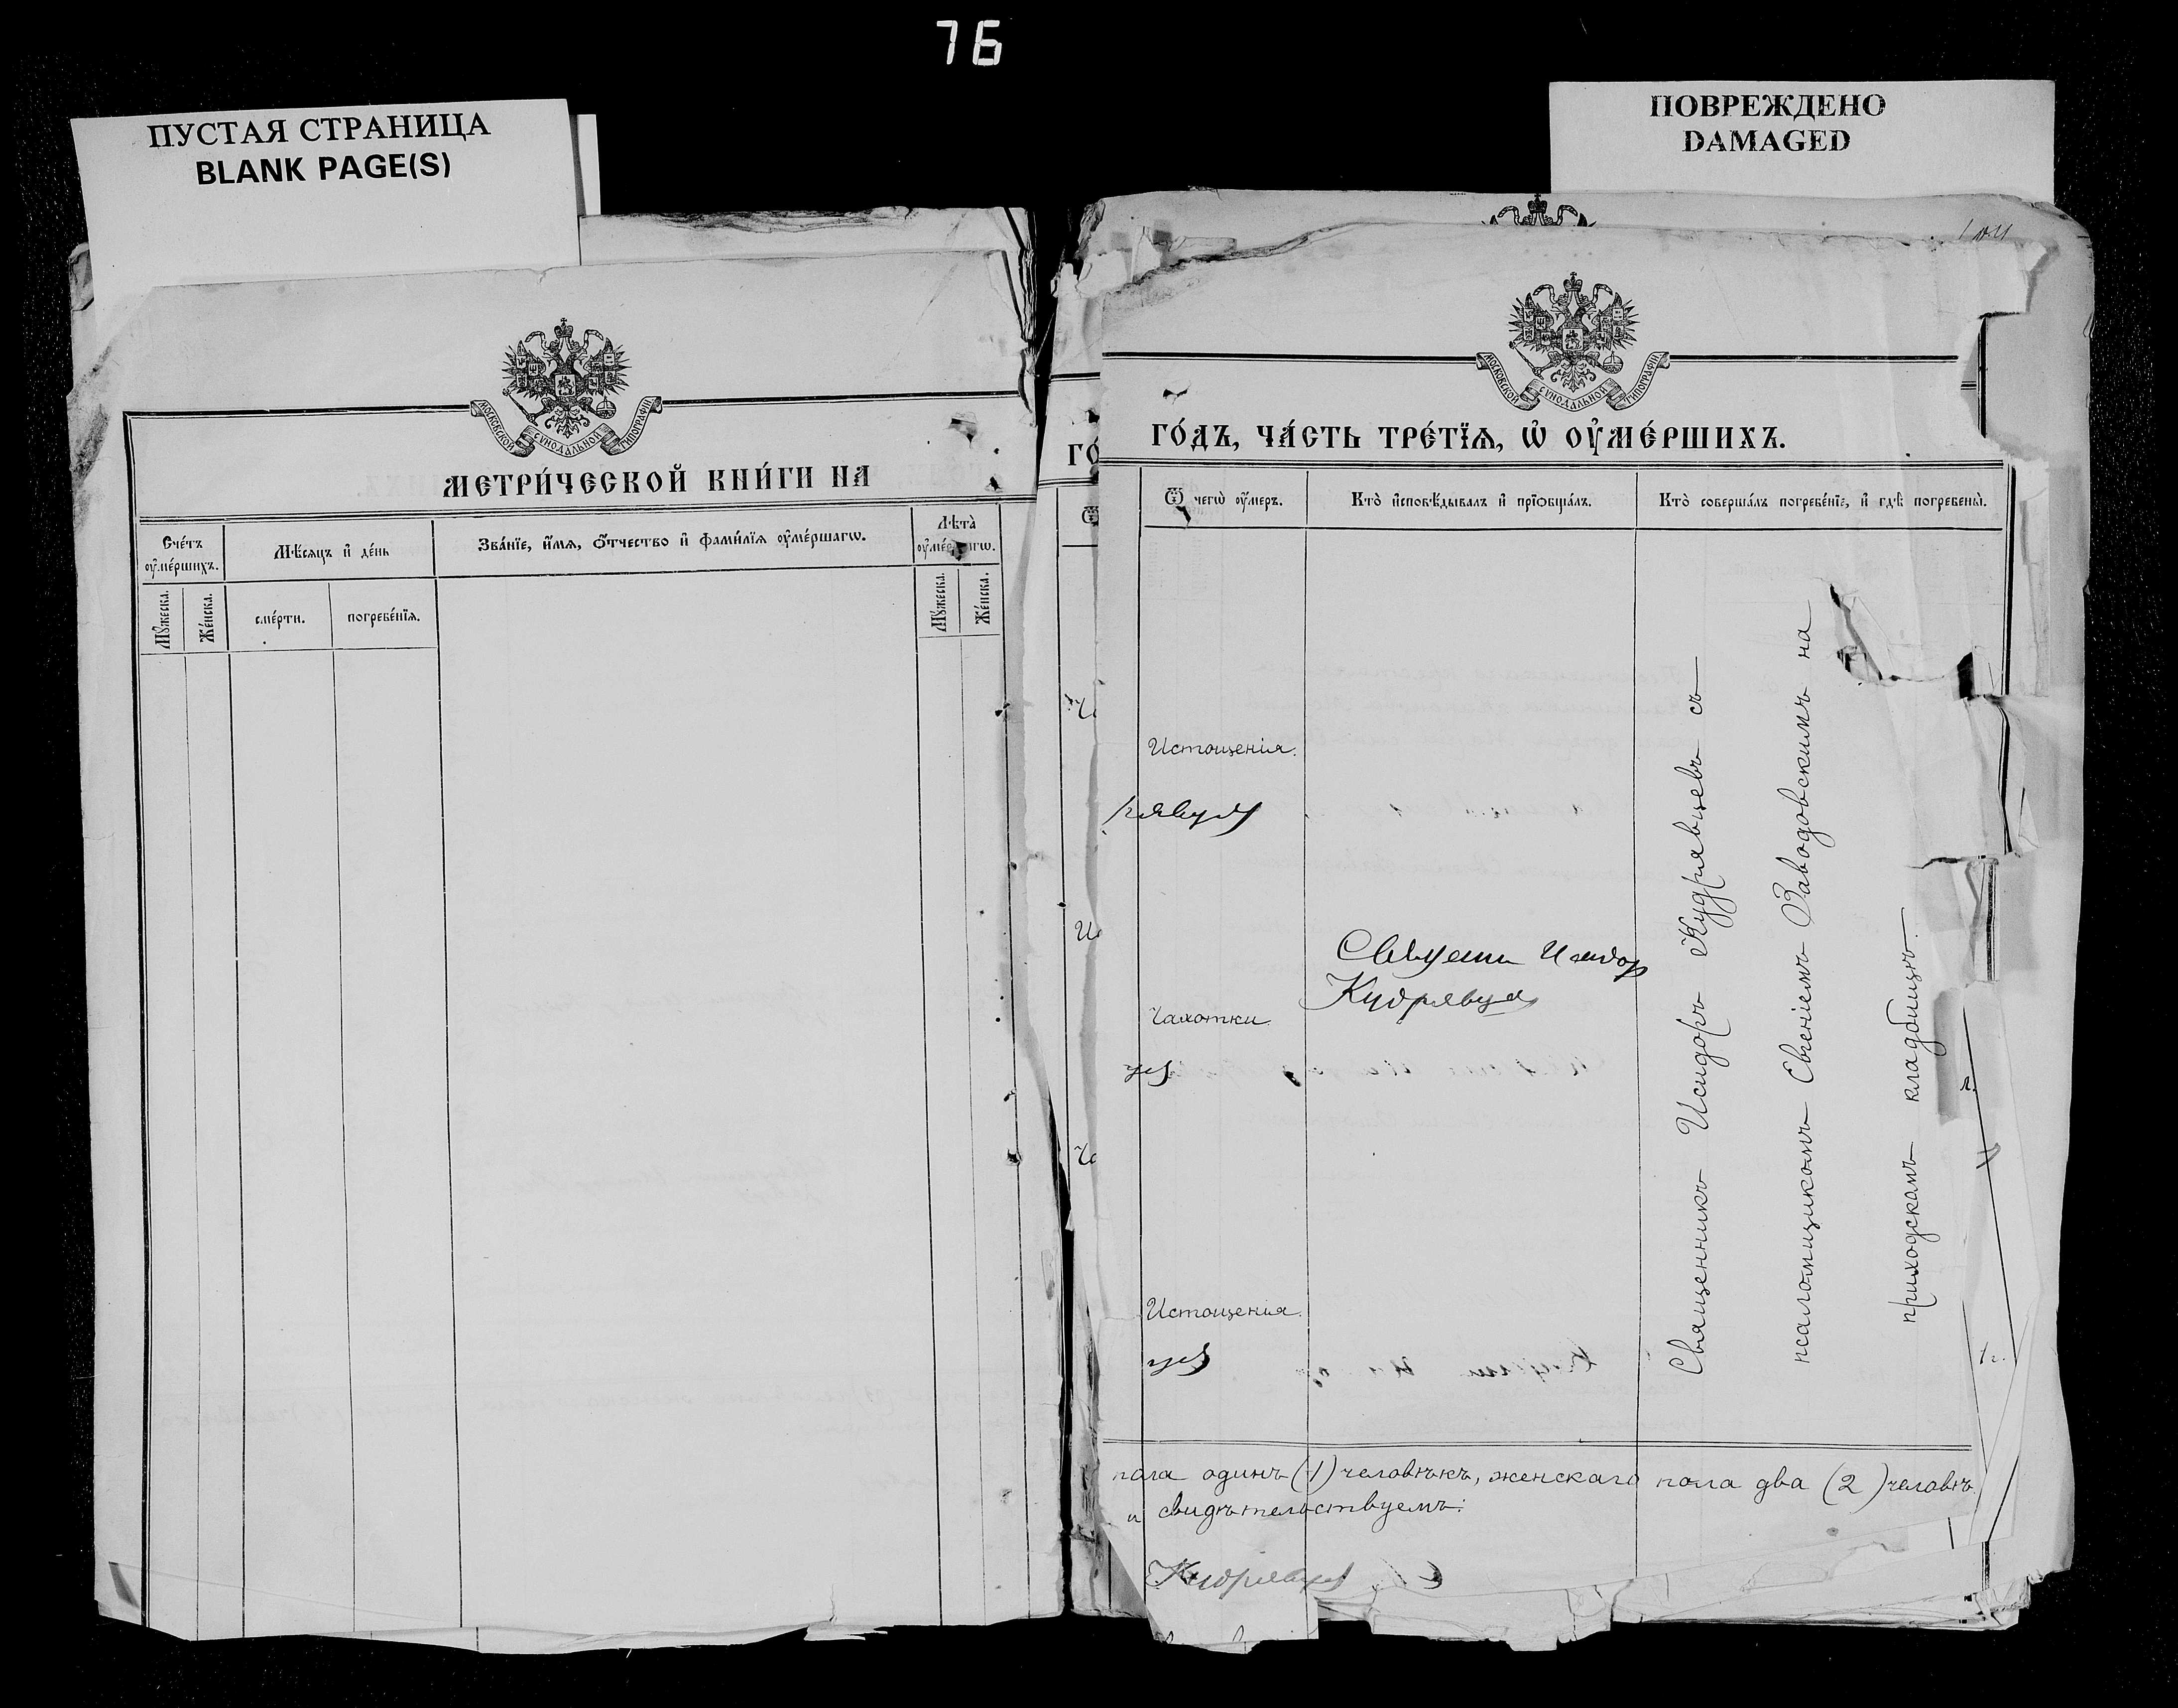 76
ПУСТАЯ СТРАНИЦА
BLANK PAGE(S)
ПОВРЕЖДЕНО
DAMAGED
МОСКОВСКОЙ СУНОДАЛЬНОЙ ТИПОГРАФІИ
МЕТРИ́ЧЕСКОЙ КНИ́ГИ НА
Сче́тъ ᲂу҆ме́ршихъ.
Мѣ́сяцъ и҆ де́нь
Зва́нїе, и҆́мѧ, ѻ҆́тчество и҆ фами́лїѧ ᲂу҆ме́ршагѡ.
Лѣта̀
Мꙋ́жеска.
Же́нска.
сме́рти.
погребе́нїѧ.
Мꙋ́жеска.
Же́нска.
МОСКОВСКОЙ СУНОДАЛЬНОЙ ТИПОГРАФІИ
ГО́ДЪ, ЧА́СТЬ ТРЕ́ТЇѦ, Ѡ҆ ОУ҆МЕ́РШИХЪ.
Ѿ чегѡ̀ ᲂу҆́меръ.
Кто̀ и҆сповѣ́дывалъ и҆ прїѻбща́лъ.
Кто̀ соверша́лъ погребе́нїе, и҆ гдѣ̀ погребены̀.
Истощенія.
Священникъ Исидоръ Кудрявцевъ съ
псаломщикомъ Евгеніемъ Заводовскимъ на
приходскамъ кладбищѣ.
Священ Исидор
Кудрявцев
Чахотки
цев
Истощенія.
цев
пола одинъ (1) человѣкъ, женскаго пола два (2) человѣ
и свидѣтельствуемъ:
Кудрявцев